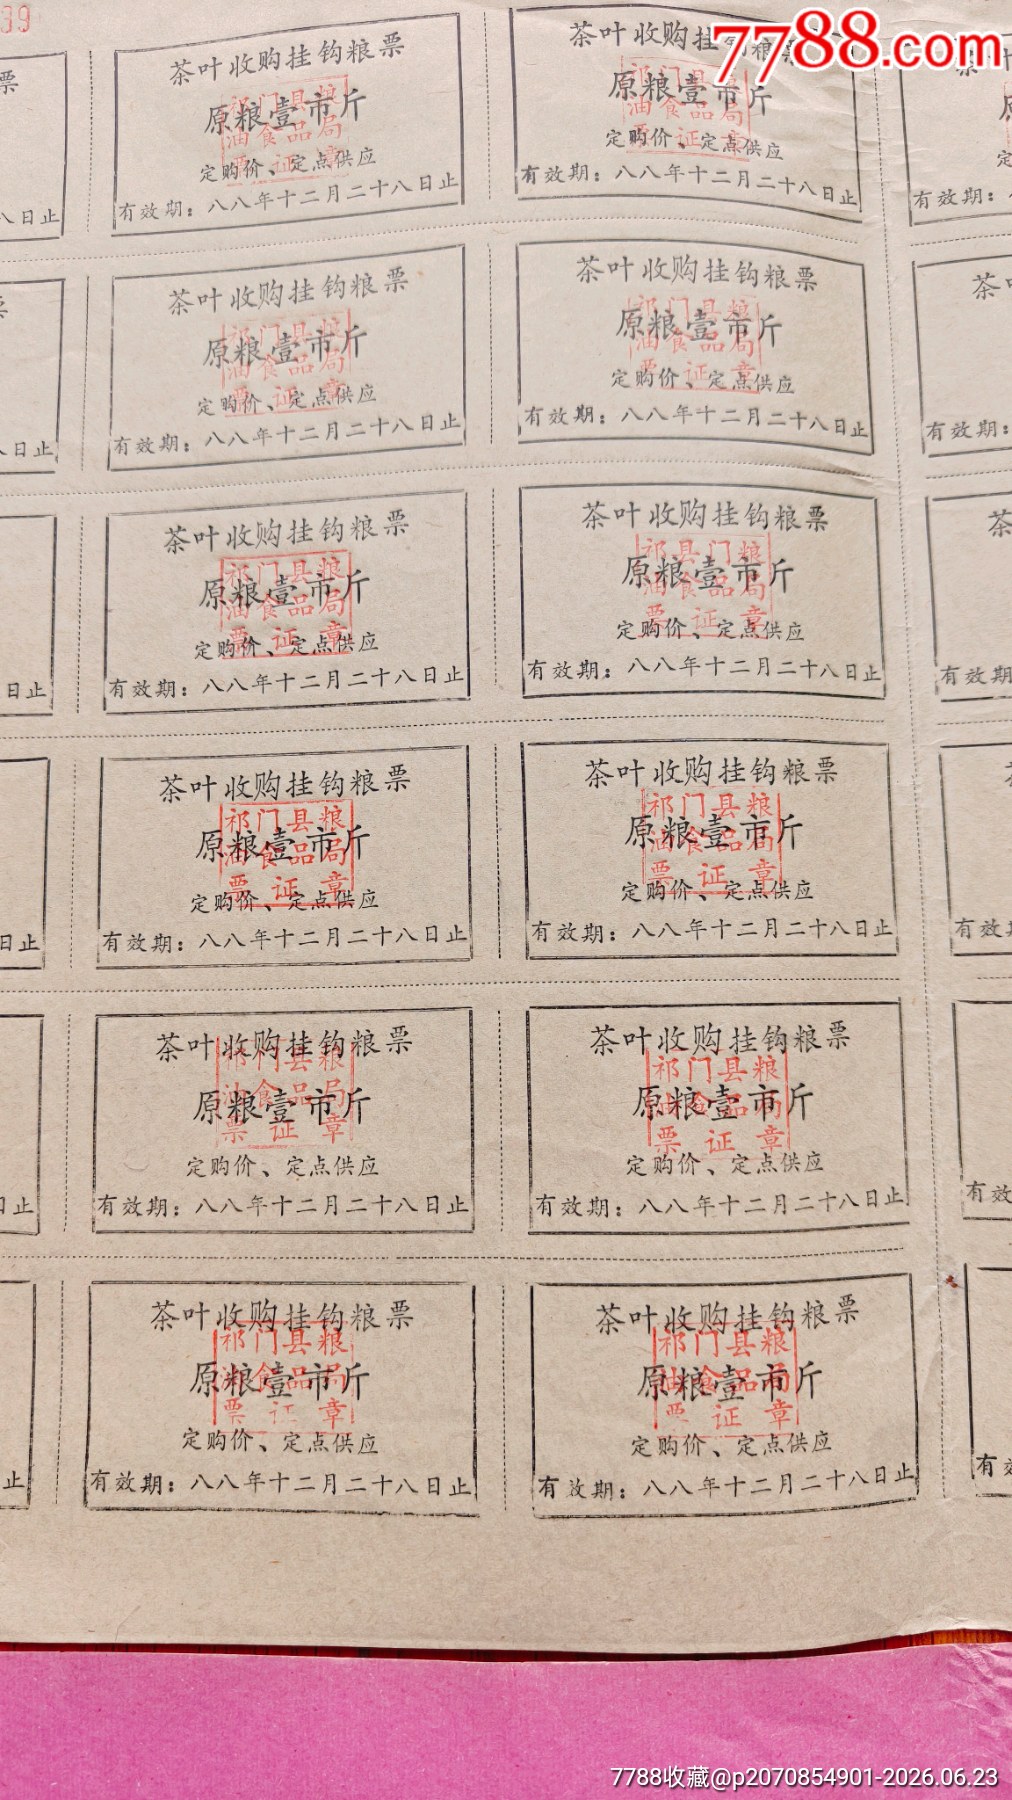 39
7788.com
票
茶叶收购挂钩粮票
茶叶收购挂钩粮票
原粮壹市斤
原粮壹市斤
祁门县粮
油食品局
票证章
祁门县粮
油食品局
票证章
定购价、定点供应
定购价、定点供应
八日止
有效期：八八年十二月二十八日止
有效期：八八年十二月二十八日止
有效期：
茶叶收购挂钩粮票
茶叶收购挂钩粮票
茶
原粮壹市斤
原粮壹市斤
祁门县粮
油食品局
票证章
祁门县粮
油食品局
票证章
定购价、定点供应
定购价、定点供应
八日止
有效期：八八年十二月二十八日止
有效期：八八年十二月二十八日止
有效期：
茶叶收购挂钩粮票
茶叶收购挂钩粮票
茶
原粮壹市斤
原粮壹市斤
祁门县粮
油食品局
票证章
祁县门粮
油食品局
票证章
定购价、定点供应
定购价、定点供应
日止
有效期：八八年十二月二十八日止
有效期：八八年十二月二十八日止
有效期
茶叶收购挂钩粮票
茶叶收购挂钩粮票
原粮壹市斤
原粮壹市斤
祁门县粮
油食品局
票证章
祁门县粮
油食品局
票证章
定购价、定点供应
定购价、定点供应
日止
有效期：八八年十二月二十八日止
有效期：八八年十二月二十八日止
有效
茶叶收购挂钩粮票
茶叶收购挂钩粮票
原粮壹市斤
原粮壹市斤
祁门县粮
油食品局
票证章
祁门县粮
油食品局
票证章
定购价、定点供应
定购价、定点供应
日止
有效期：八八年十二月二十八日止
有效期：八八年十二月二十八日止
有效
茶叶收购挂钩粮票
茶叶收购挂钩粮票
原粮壹市斤
原粮壹市斤
祁门县粮
油食品局
票证章
祁门县粮
油食品局
票证章
定购价、定点供应
定购价、定点供应
止
有效期：八八年十二月二十八日止
有效期：八八年十二月二十八日止
有效
7788收藏@p2070854901-2026.06.23